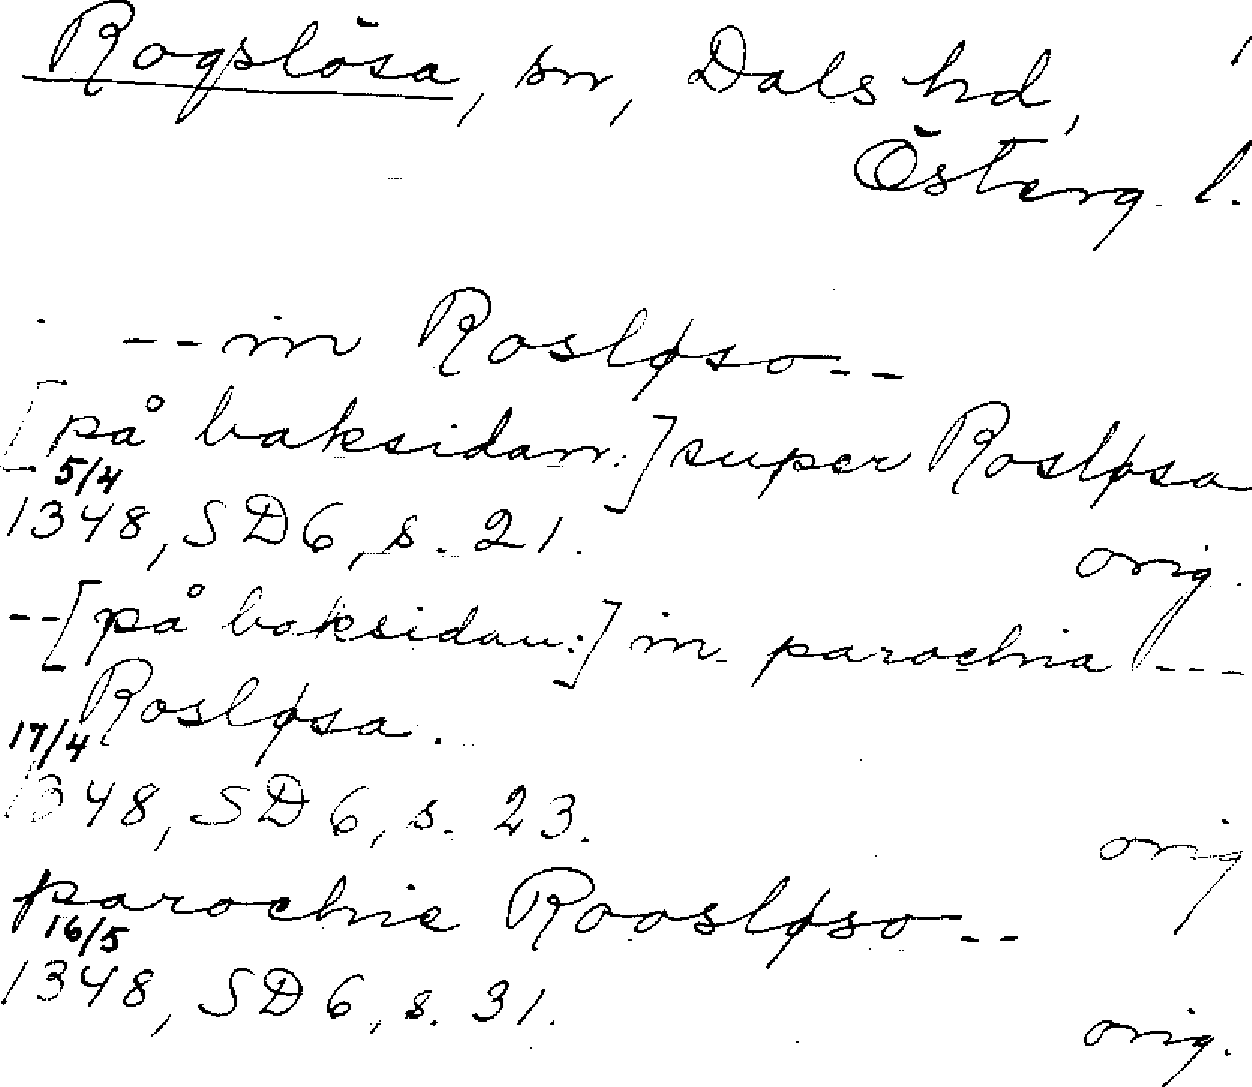 Rogslösa, sn, Dals hd,
Österg. l.
-- in Rosløso --
[på baksidan:] super Rosløsa
5/4
1348, SD 6, s. 21.
orig.
--[på baksidan:] in parochia ---
Rosløsa.
17/4
1348, SD 6, s. 23.
orig
parochie Roosløso --
16/5
1348, SD 6, s. 31.
orig.